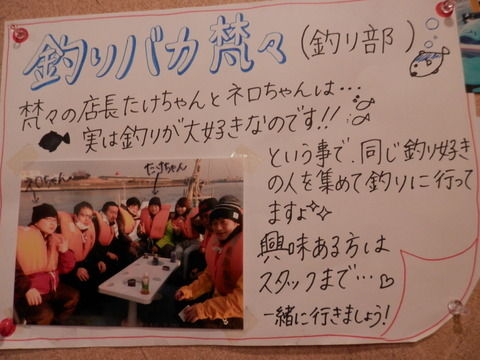 釣りバカ 梵々 (釣り部)
梵々の店長たけちゃんとネロちゃんは…
実は釣りが大好きなのです!!
という事で、同じ釣り好き
の人を集めて釣りに行って
ますよ
興味ある方は
スタッフまで…
一緒に行きましょう!
ネロちゃん
たけちゃん